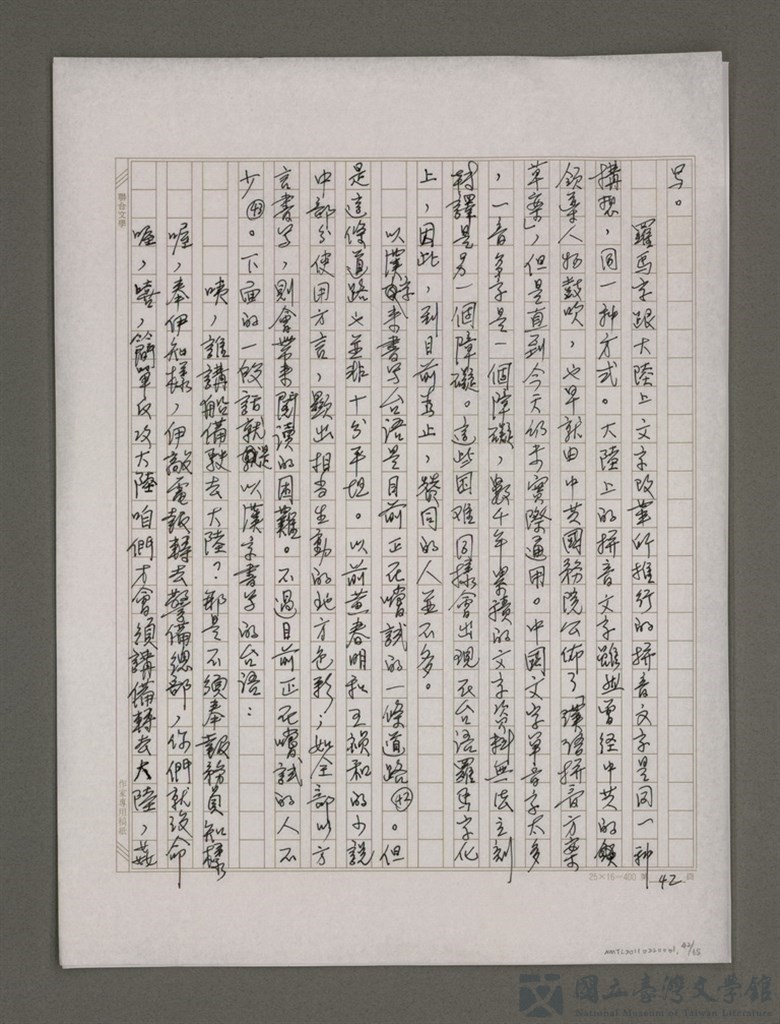 字。
羅馬字跟大陸上文字改革所推行的拼音文字是同一种
構想，同一种方式。大陸上的拼音文字雖然曾经中共的
領導人物鼓吹，也早就由中共國務院公佈了「漢語拼音方案
草案」，但是直到今天仍未實際通用。中國文字單音字太多
，一音多字是一個障礙，數千年累積的文字資料無法立刻
轉譯是另一個障礙。這些困难同樣會出現在台语羅馬字化
上，因此，到目前為止，贊同的人並不多。
以漢字來書写台语是目前正在嚐試的一條道路㊷。但
是這條道路也並非十分平坦。以前黃春明和王禎和的小說
中部分使用方言，顯出相当生動的地方色彩；如全部以方
言書写，則會帶來閱读的困難。不過目前正在嚐試的人不
少㊸。下面的一段話就是以漢字書写的台语：
咦，誰講船備駛去大陸？都是不須奉報務員知樣
喔，奉伊知樣，伊敲電報轉去警備總部，你們就沒命
喔，嘻，簡單反攻大陸咱們才會須講備轉去大陸，
聯合文學
作家專用稿紙
25×16=400 第 42 頁
42/65
國立臺灣文學館
National Museum of Taiwan Literature